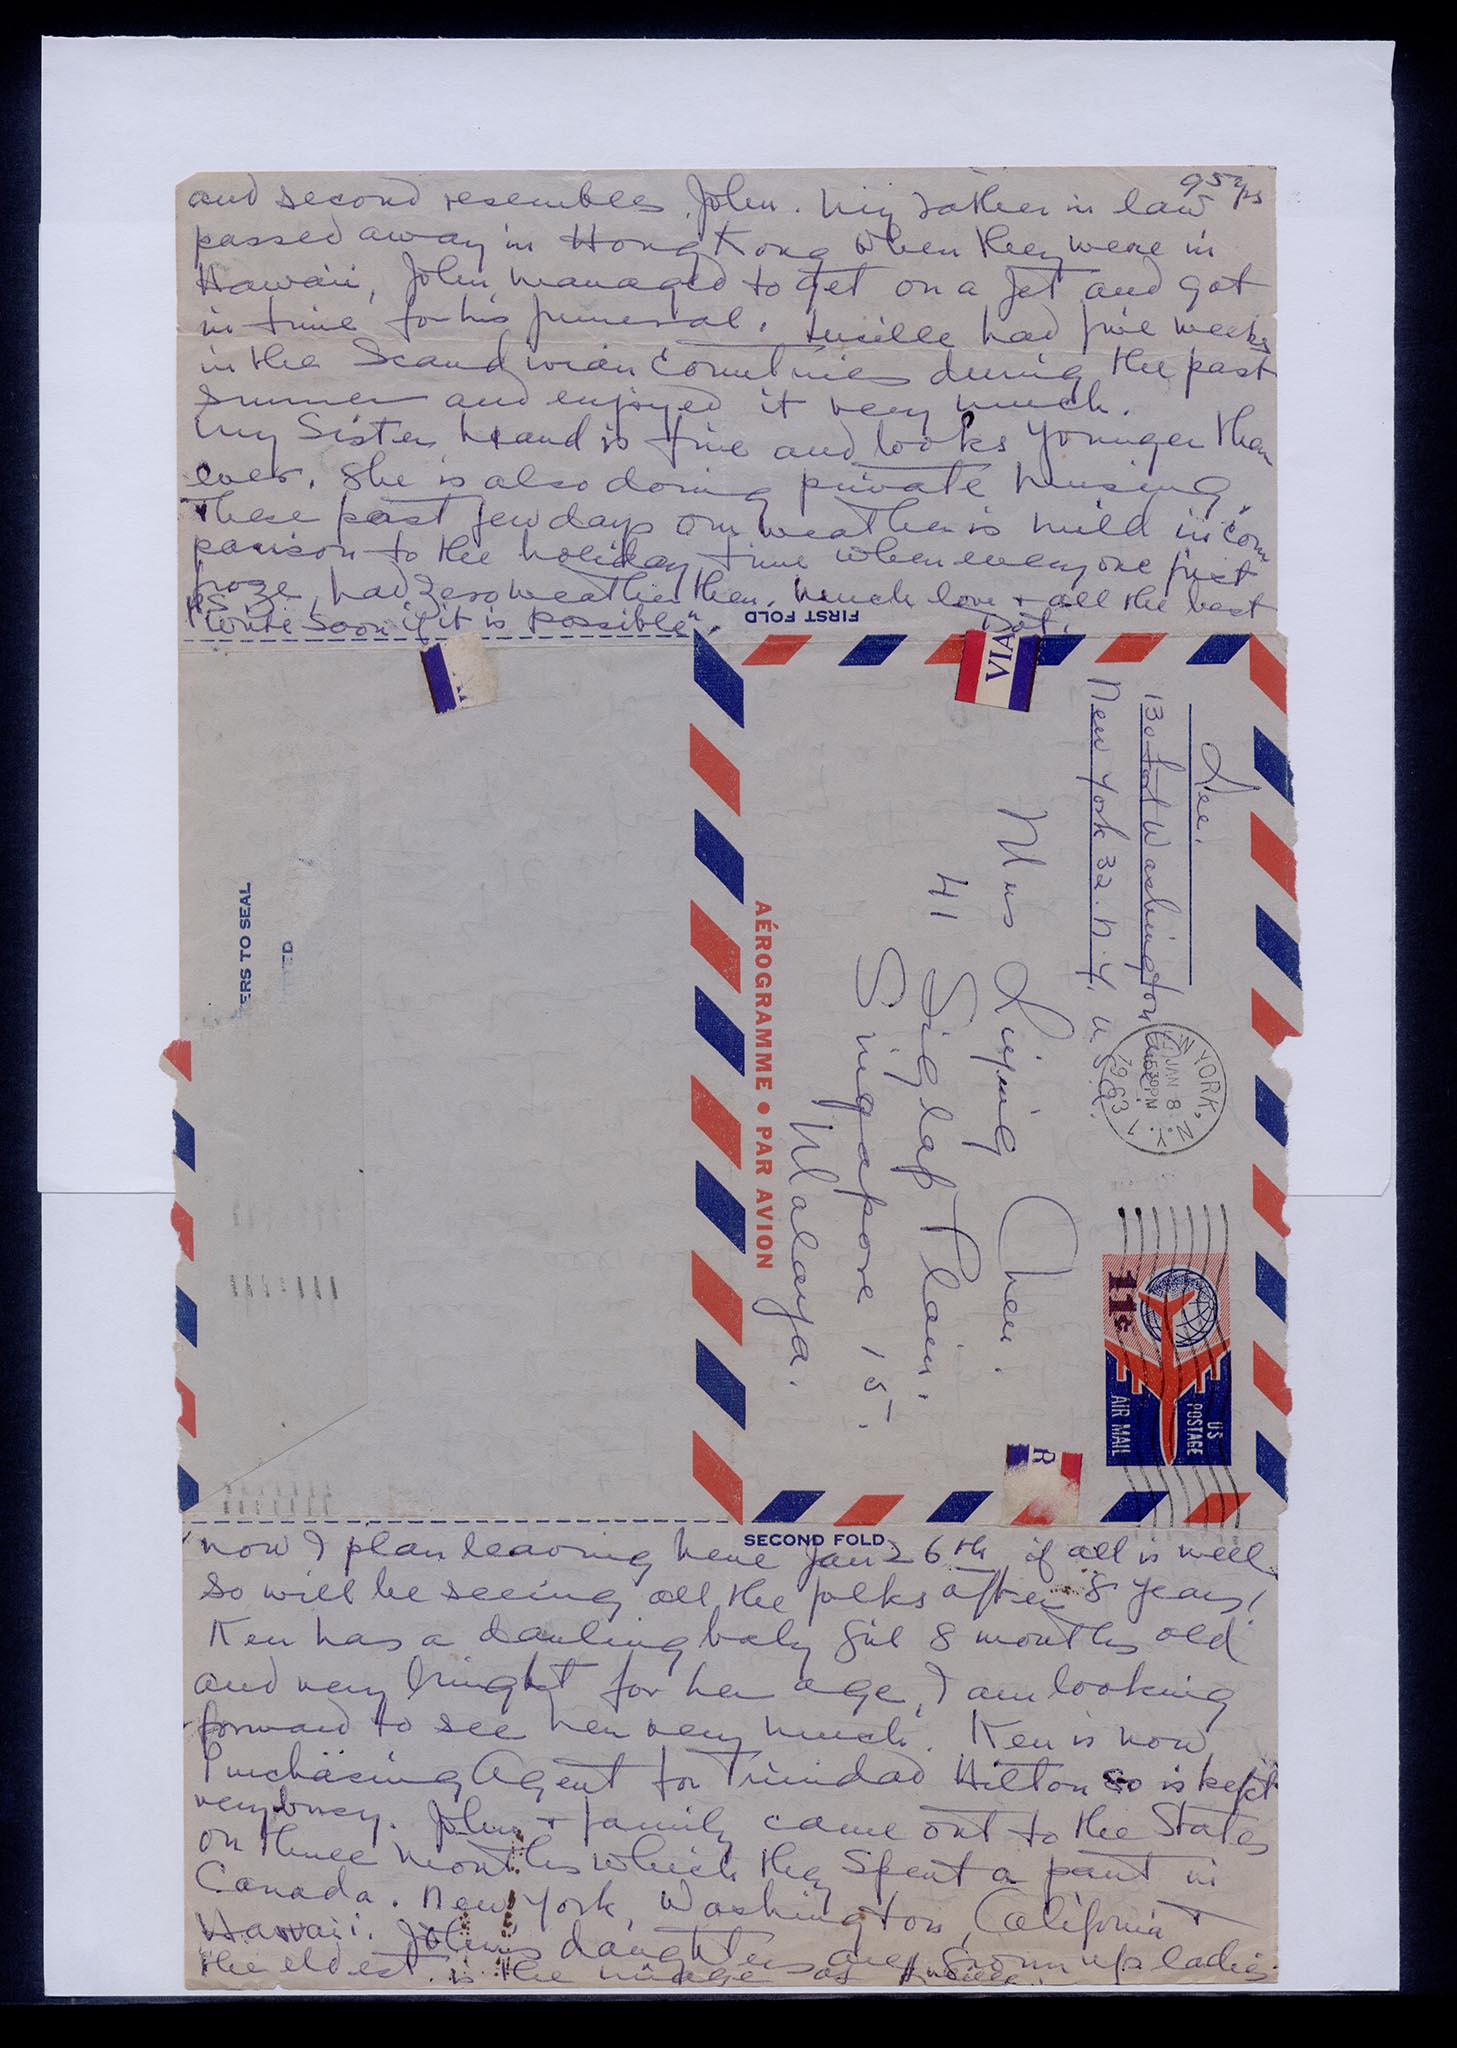 and second resembles John. My Father in law 95 yrs
passed away in Hong Kong when they were in
Hawaii, John managed to get on a jet and got
in time for his funeral. Lucille had five weeks
in the Scandivian Countries during the past
Summer and enjoyed it very much.
My Sister Maud is fine and looks younger than
ever. She is also doing private nursing.
These past few days our weather is mild in com
parison to the holiday time when everyone just
froze, had zero weather then. Much love + all the best
P.S. "Write soon if it is possible". Dot.
FIRST FOLD
VIA
Lee.
130 Fort Washington Ave
New York 32. N.Y. U.S.A.
N YORK, N.Y. 1
JAN 8
530PM
1963
11¢
US
POSTAGE
AIR MAIL
Mrs Liying Chen.
41 Siglap Plain.
Singapore 15.
Malaya.
AÉROGRAMME • PAR AVION
R
ERS TO SEAL
SECOND FOLD
now I plan leaving here Jan 26th if all is well
so will be seeing all the folks after 8 years!
Ken has a darling baby girl 8 months old
and very bright for her age, I am looking
forward to see her very much. Ken is now
Purchasing Agent for Trinidad Hilton so is kept
very busy. John + family came out to the States
on three months which they spent a part in
Canada. New York, Washington, California +
Hawaii. John's daughters are grown up ladies
the eldest is the image of Lucille